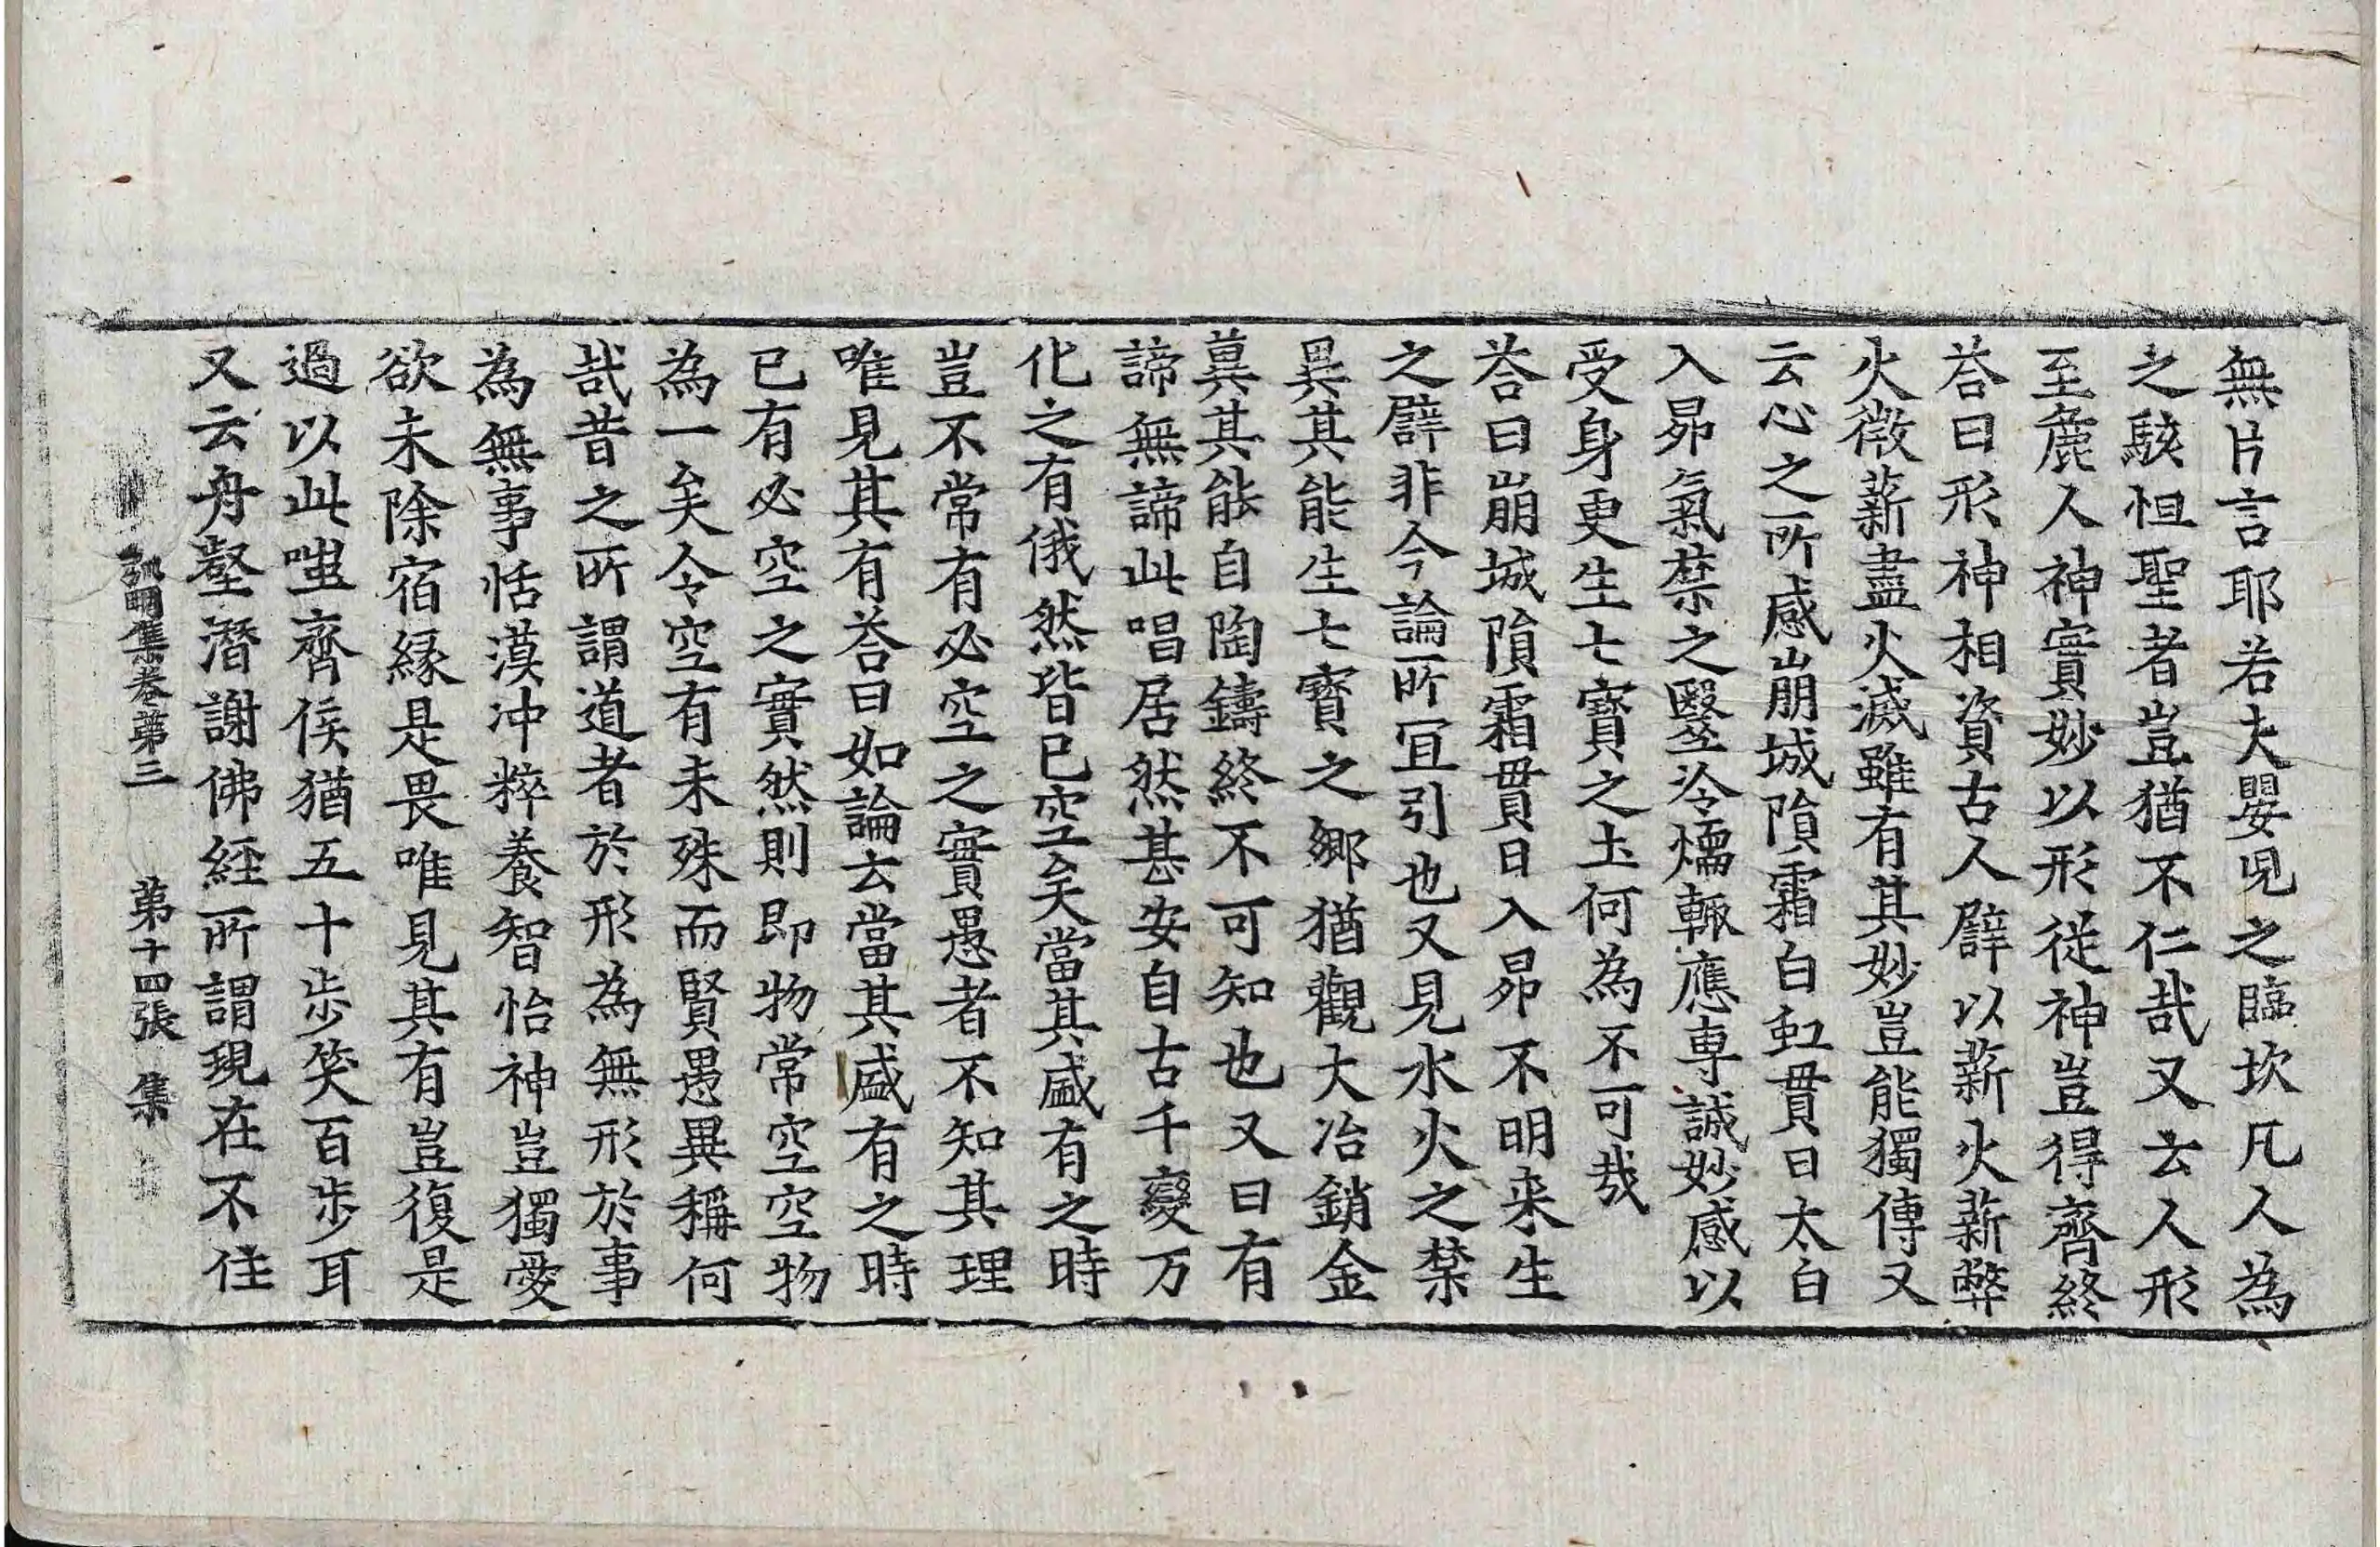 無片言耶若夫嬰児之臨坎凡人為
之駭怛聖者豈猶不仁哉又云人形
至麁人神實妙以形従神豈得齊終
荅曰形神相資古人譬以薪火薪弊
火微薪盡火滅雖有其妙豈能獨傳又
云心之所感崩城隕霜白虹貫日太白
入昴氣禁之醫冷煗輙應専誠妙感以
受身更生七寶之土何為不可哉
荅曰崩城隕霜貫日入昴不明来生
之譬非今論所宜引也又見水火之禁
異其能生七寶之鄉猶觀大冶銷金
冀其能自陶鑄終不可知也又曰有
諦無諦此唱居然甚安自古千變万
化之有俄然皆已空矣當其盛有之時
豈不常有必空之實愚者不知其理
唯見其有荅曰如論云當其盛有之時
已有必空之實然則即物常空空物
為一矣今空有未殊而賢愚異稱何
哉昔之所謂道者於形為無形於事
為無事恬漠冲粹養智怡神豈獨愛
欲未除宿縁是畏唯見其有豈復是
過以此嗤齊侯猶五十步笑百步耳
又云舟壑潛謝佛経所謂現在不住
弘明集卷苐三　苐十四張　集